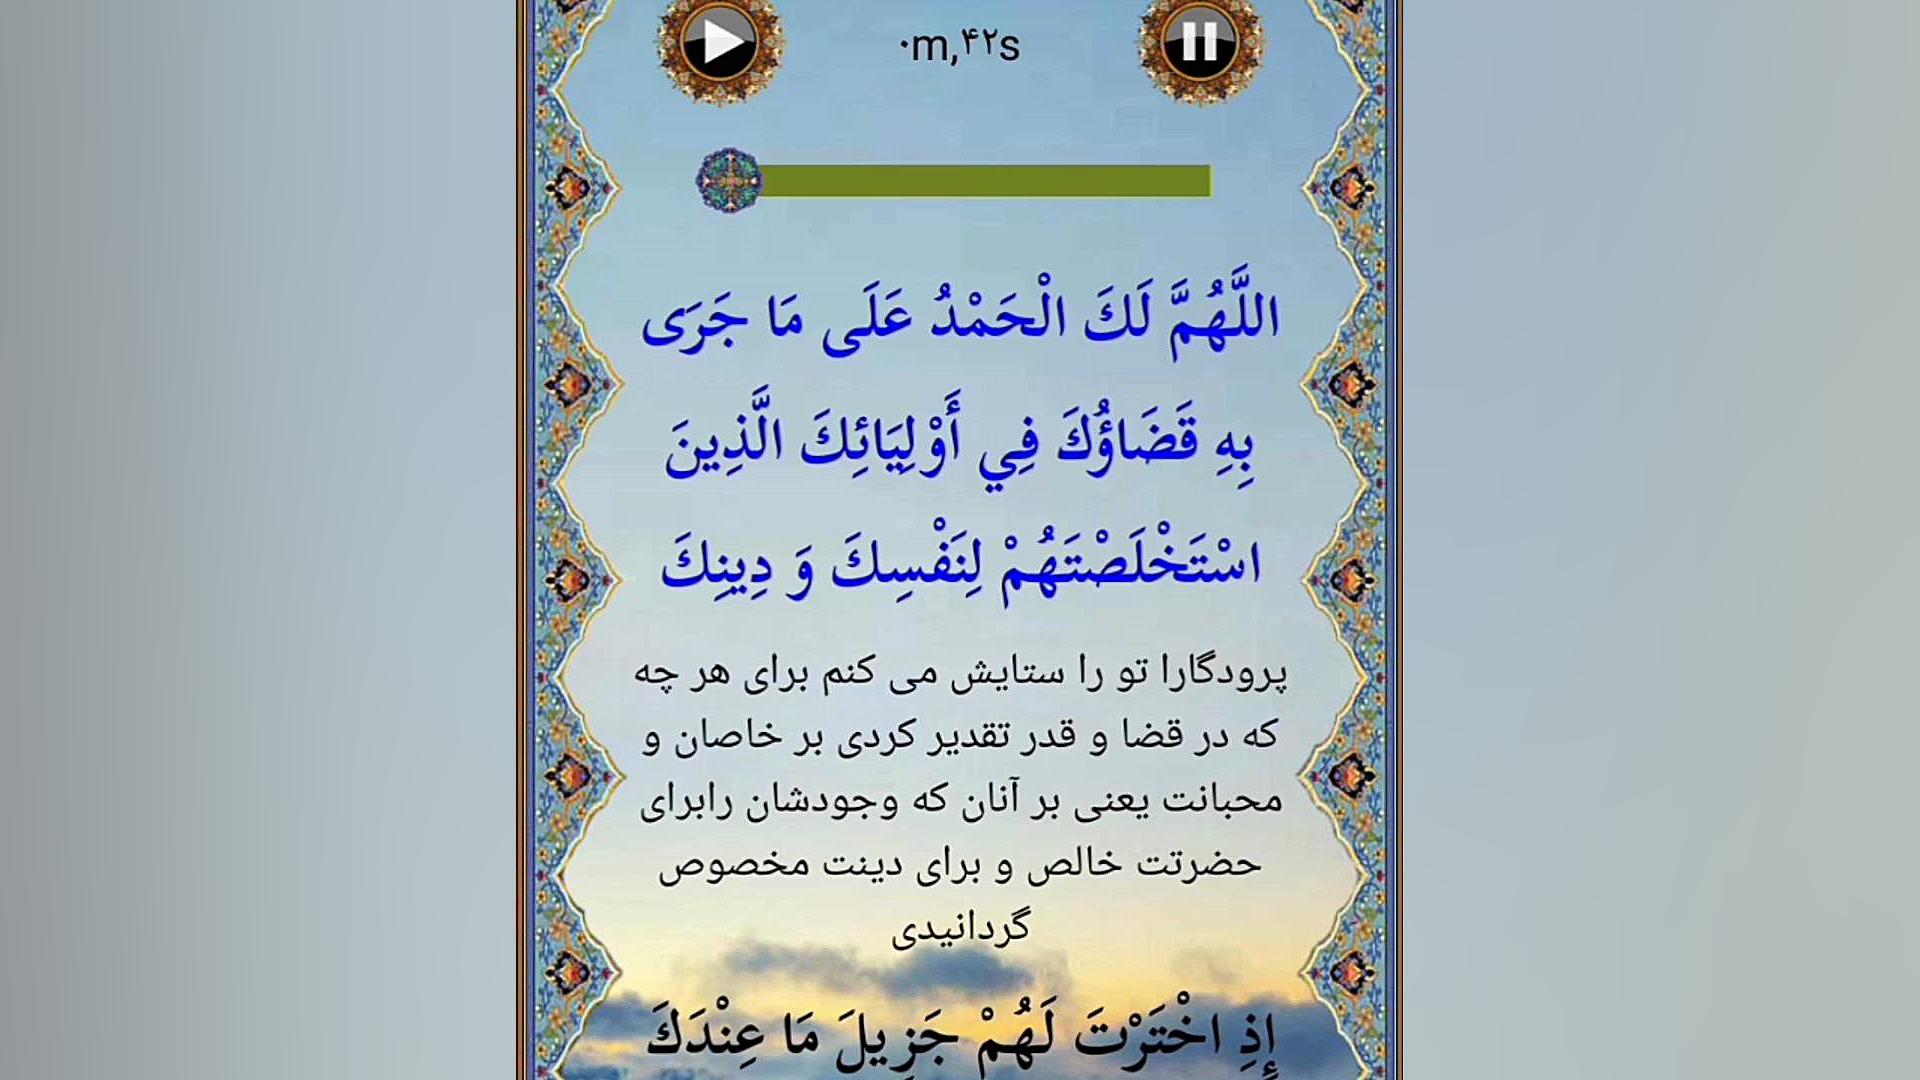 ۰m,۴۲s
اللَّهُمَّ لَكَ الْحَمْدُ عَلَى مَا جَرَى
بِهِ قَضَاؤُكَ فِي أَوْلِيَائِكَ الَّذِينَ
اسْتَخْلَصْتَهُمْ لِنَفْسِكَ وَ دِينِكَ
پرودگارا تو را ستایش می کنم برای هر چه
که در قضا و قدر تقدیر کردی بر خاصان و
محبانت یعنی بر آنان که وجودشان رابرای
حضرتت خالص و برای دینت مخصوص
گردانیدی
إِذِ اخْتَرْتَ لَهُمْ جَزِيلَ مَا عِنْدَكَ